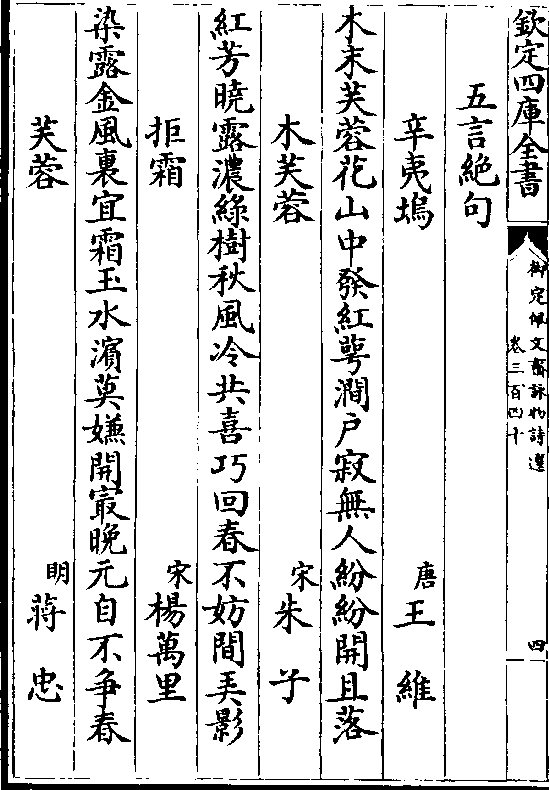 欽定四庫全書
御定佩文齋詠物詩選
卷三百四十
四
五言絶句
辛夷塢 唐王維
木末芙蓉花山中發紅萼澗户寂無人紛紛開且落
木芙蓉 宋朱子
紅芳曉露濃綠樹秋風冷共喜巧回春不妨間弄影
拒霜 宋楊萬里
染露金風裏宜霜玉水濱莫嫌開㝡晚元自不争春
芙蓉 明蔣忠